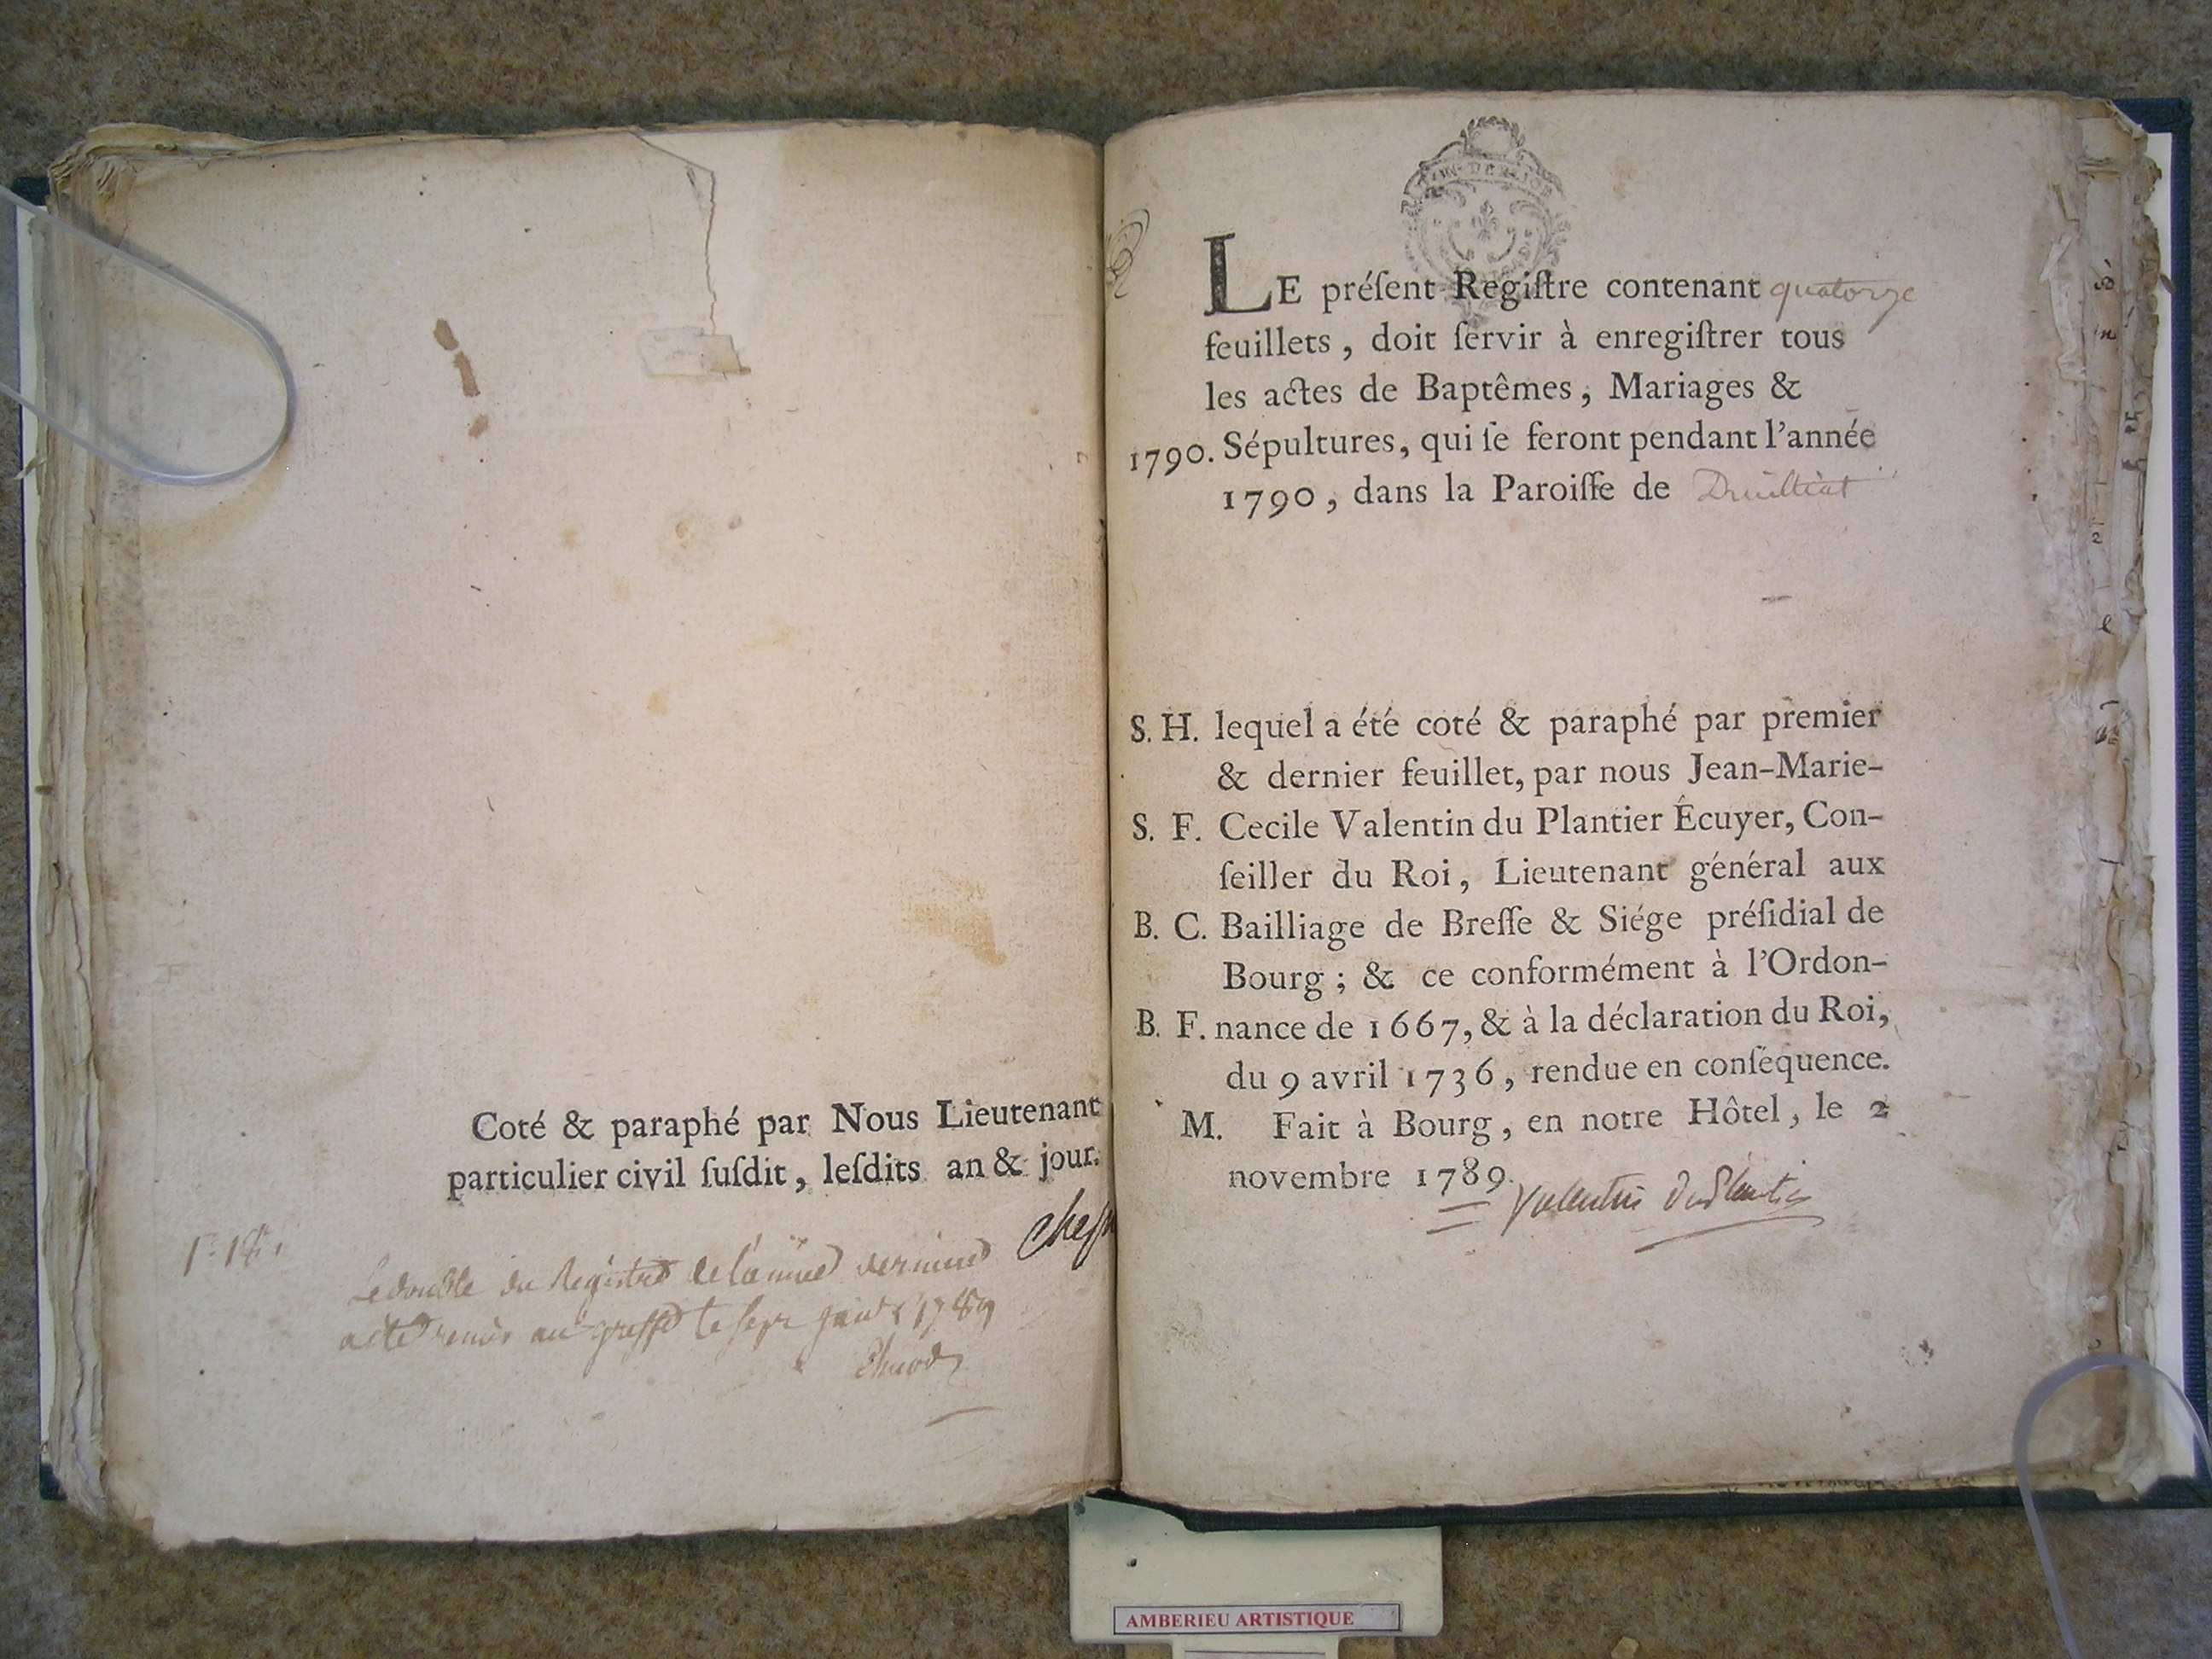 Coté & paraphé par Nous Lieutenant
particulier civil ſuſdit, leſdits an & jour.
Le double du Registre de l'année derniere
acté remis au greffe le sept janv 1789
LE préſent Regiſtre contenant quatorze
feuillets, doit ſervir à enregiſtrer tous
les actes de Baptêmes, Mariages &
1790. Sépultures, qui ſe feront pendant l'année
1790, dans la Paroiſſe de Druilliat
S. H. lequel a été coté & paraphé par premier
& dernier feuillet, par nous Jean-Marie-
S. F. Cecile Valentin du Plantier Écuyer, Con-
ſeiller du Roi, Lieutenant général aux
B. C. Bailliage de Breſſe & Siége préſidial de
Bourg ; & ce conformément à l'Ordon-
B. F. nance de 1667, & à la déclaration du Roi,
du 9 avril 1736, rendue en conſéquence.
M. Fait à Bourg, en notre Hôtel, le 2
novembre 1789.
Valentin Duplantier
AMBERIEU ARTISTIQUE